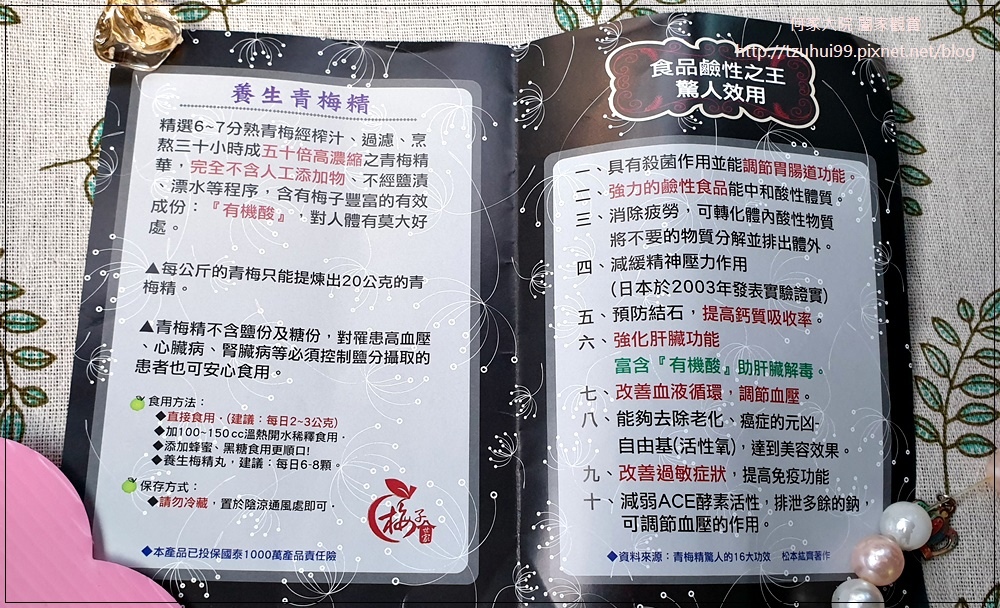 何家大院 圖來觀普
http://tzuhui99.pixnet.net/blog
養生青梅精
精選6~7分熟青梅經榨汁、過濾、烹
熬三十小時成五十倍高濃縮之青梅精
華，完全不含人工添加物、不經鹽漬
、漂水等程序，含有梅子豐富的有效
成份：『有機酸』，對人體有莫大好
處。
▲每公斤的青梅只能提煉出20公克的青
梅精。
▲青梅精不含鹽份及糖份，對罹患高血壓
、心臟病、腎臟病等必須控制鹽分攝取的
患者也可安心食用。
食用方法：
◆直接食用．(建議：每日2~3公克)
◆加100~150cc溫熱開水稀釋食用．
◆添加蜂蜜、黑糖食用更順口!
◆養生梅精丸，建議：每日6-8顆。
保存方式：
◆請勿冷藏，置於陰涼通風處即可．
梅子
◆本產品已投保國泰1000萬產品責任險
食品鹼性之王
驚人效用
一、具有殺菌作用並能調節胃腸道功能。
二、強力的鹼性食品能中和酸性體質。
三、消除疲勞，可轉化體內酸性物質
將不要的物質分解並排出體外。
四、減緩精神壓力作用
(日本於2003年發表實驗證實)
五、預防結石，提高鈣質吸收率。
六、強化肝臟功能
富含『有機酸』助肝臟解毒。
七、改善血液循環，調節血壓。
八、能夠去除老化、癌症的元凶-
自由基(活性氧)，達到美容效果。
九、改善過敏症狀，提高免疫功能
十、減弱ACE酵素活性，排泄多餘的鈉，
可調節血壓的作用。
◆資料來源：青梅精驚人的16大功效 松本紘齊著作